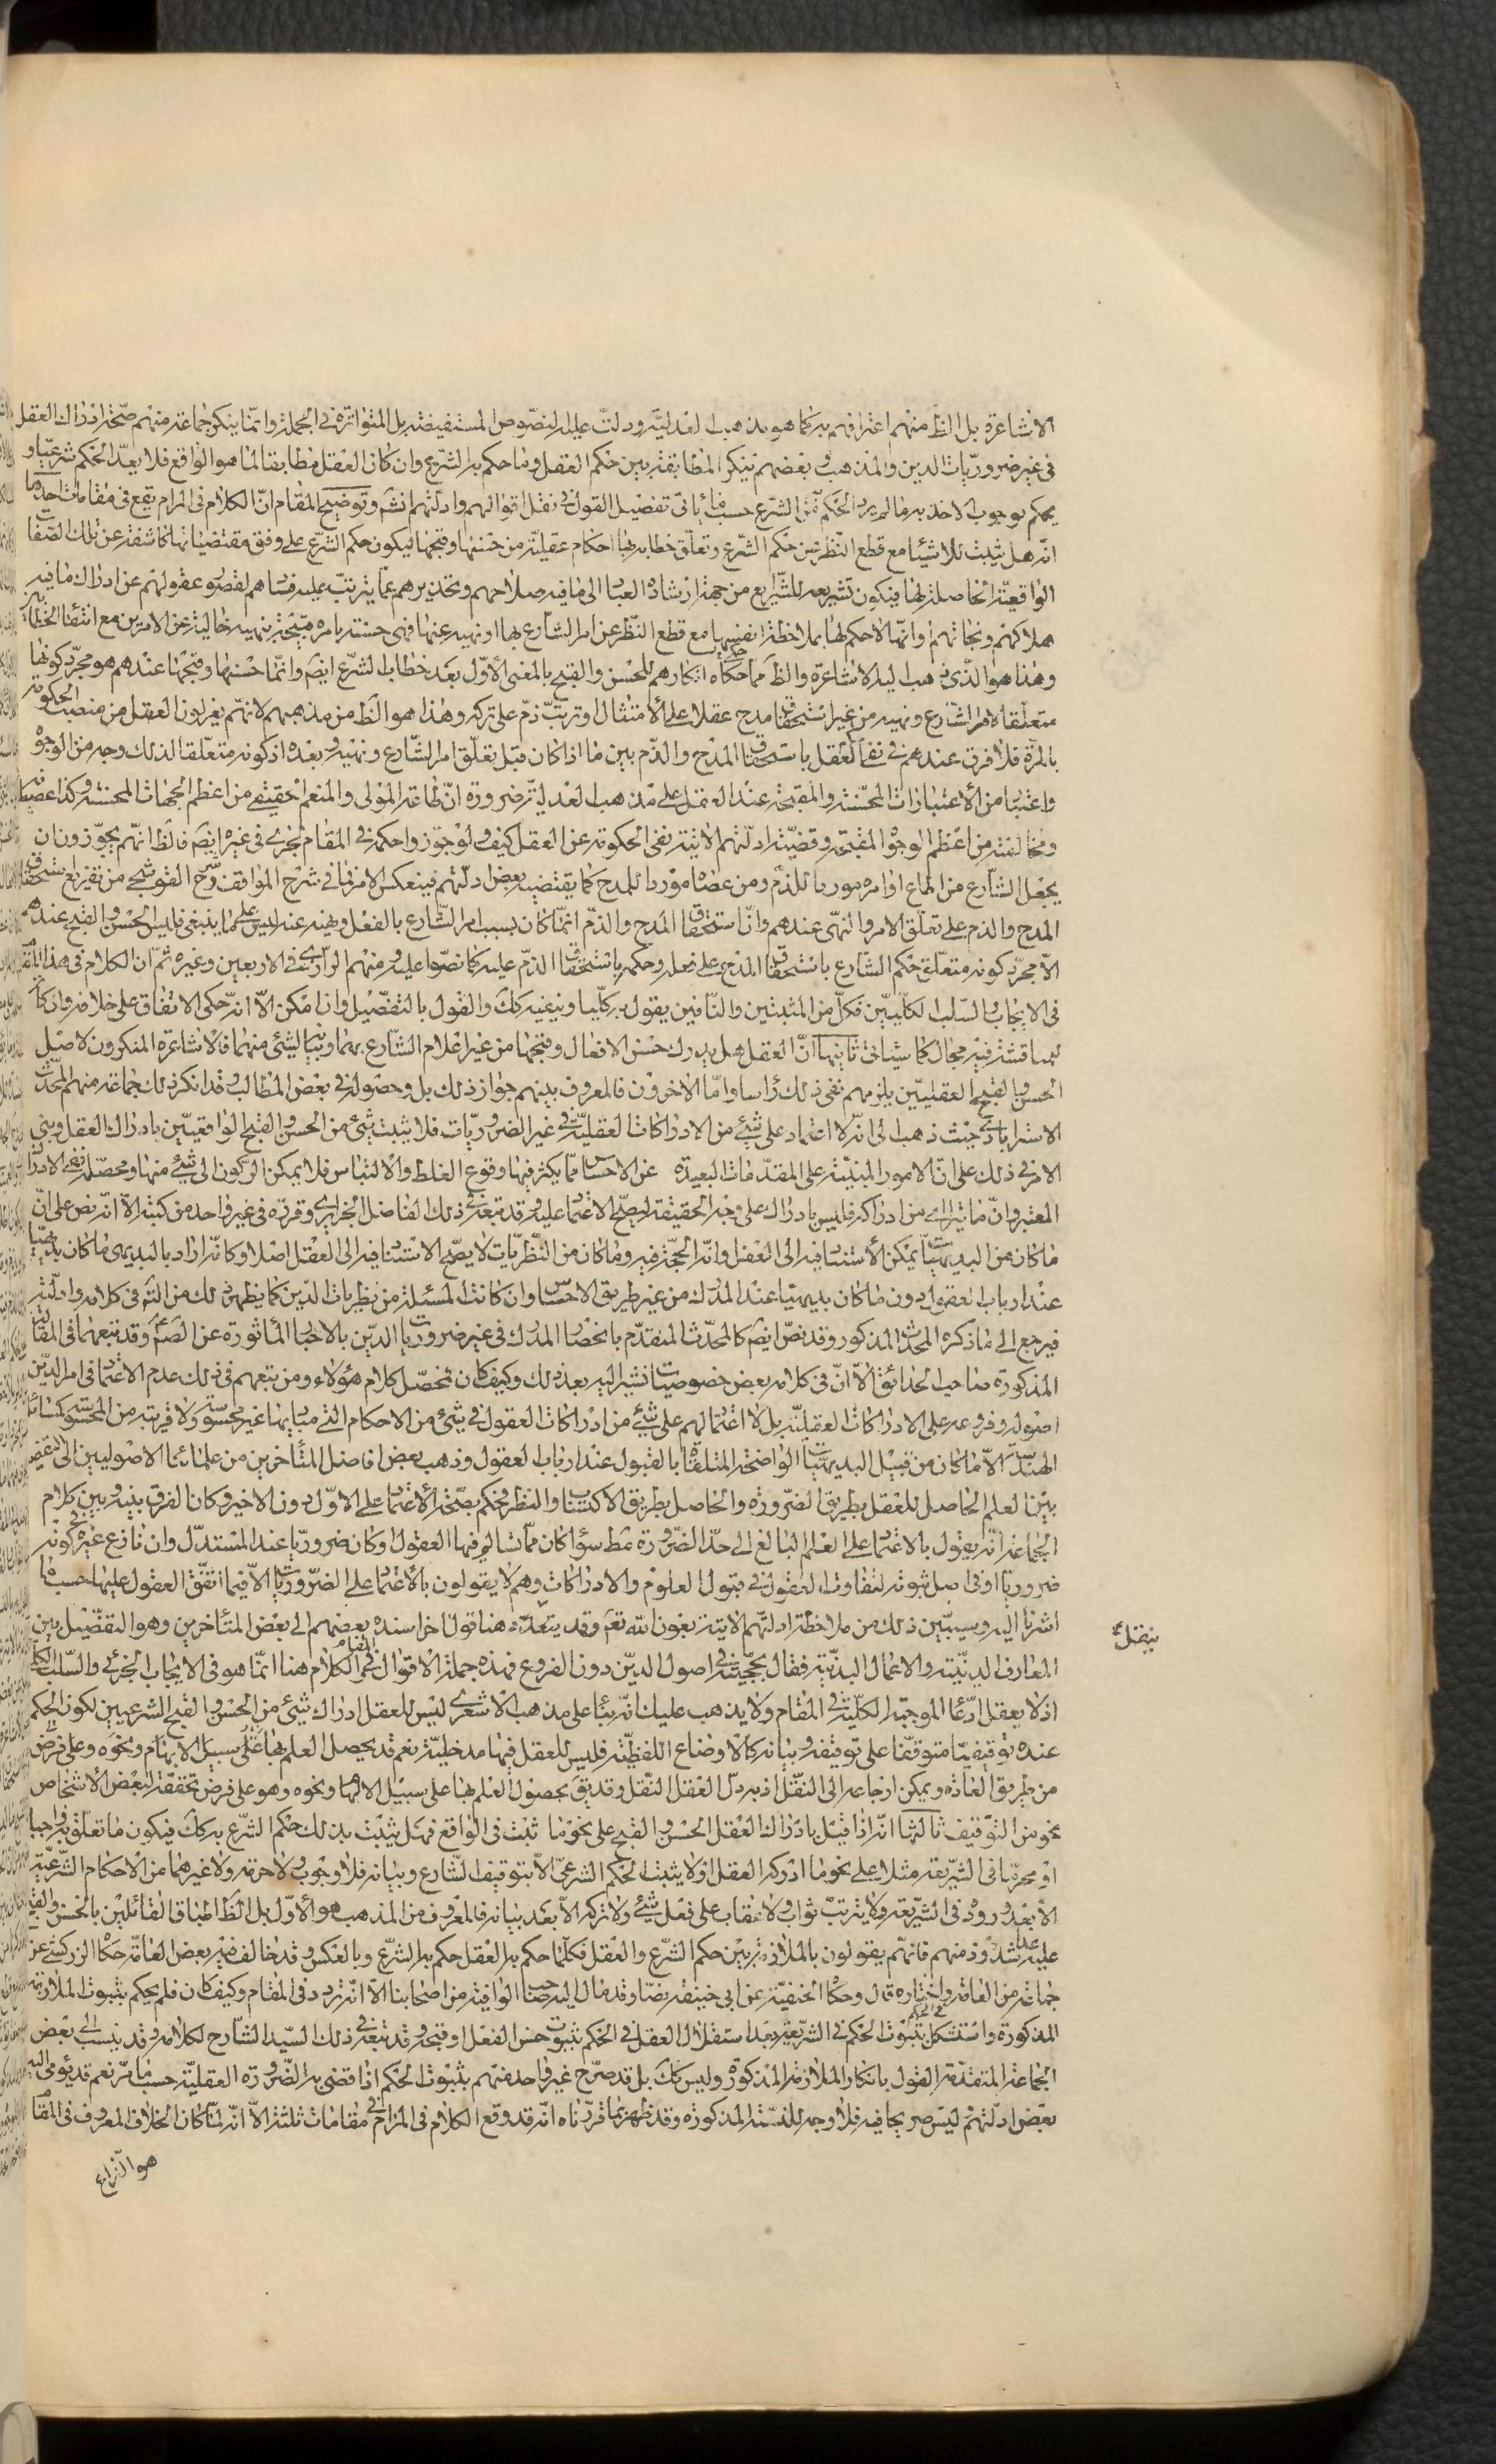 الاشاعرة بل الظ منهم اعترافهم به كما هو مذهب العدلية ودلت عليه النصوص المستفيضة بل المتواترة في الجملة وانما ينكر جماعة منهم صحة ادراك العقل
في غير ضروريات الدين والمذهب وبعضهم ينكر المطابقة بين حكم العقل وما حكم به الشرع وان كان العقل مطابقا لما هو الواقع فلا يعد الحكم شرعيا و
يحكم بوجوب الاخذ به ما لم يرد الحكم من الشرع حسب ما ياتي تفصيل القول في نقل اقوالهم وادلتهم انشه وتوضيح المقام ان الكلام في المرام يقع في مقامات احدها
انه هل يثبت للاشياء مع قطع النظر عن حكم الشرع وتعلق خطابه بها احكام عقلية من حسنها وقبحها فيكون حكم الشرع على وفق مقتضياتها كاشفة عن تلك الصفات
الواقعية الحاصلة لها فيكون تشريعه للشرايع من جهة ارشاد العباد الى ما فيه صلاحهم وتحذيرهم عما يترتب عليه فسادهم لقصور عقولهم عن ادراك ما فيه
هلاكهم ونجاتهم وانها لا حكم لها بملاحظة انفسها مع قطع النظر عن امر الشارع بها او نهيه عنها فهى حسنة بامره قبيحة بنهيه خالية عن الامرين مع انتفاء الخطاب
وهذا هو الذي ذهب اليه الاشاعرة والظ مما حكاه انكارهم للحسن والقبح بالمعنى الاول بعد خطاب الشرع ايضا وانما حسنها وقبحها عندهم هو مجرد كونها
متعلقا لامر الشارع ونهيه من غير استحقاق مدح عقلا على الامتثال او ترتب ذم على تركه وهذا هو الظ من مذهبهم لانهم يعزلون العقل من منصب الحكومة
بالمرة فلا فرق عندهم في نفي العقل باستحقاق المدح والذم بين ما اذا كان قبل تعلق امر الشارع ونهيه وبعده اذ كونه متعلقا لذلك وجه من الوجوه
واعتبار من الاعتبارات المحسنة والمقبحة عند العقل على مذهب العدلية ضرورة ان طاعة المولى والمنعم الحقيقي من اعظم الجهات المحسنة وكذا عصيانه
ومخالفته من اعظم الوجوه المقبحة وقضية ادلتهم الاتية نفى الحكومة عن العقل كيف ولو جوزوا حكمه في المقام لجرى في غيره ايضا فالظ انهم يجوزون ان
يجعل الشارع من اطاع اوامره موردا للذم ومن عصاه موردا للمدح كما يقتضيه بعض ادلتهم فينعكس الامر فما في شرح المواقف وشرح القوشجي من تفريع استحقاق
المدح والذم على تعلق الامر والنهي عندهم وان استحقاق المدح والذم انما كان بسبب امر الشارع بالفعل ونهيه عنه ليس على ما ينبغي فليس الحسن والقبح عندهم
الا مجرد كونه متعلق حكم الشارع باستحقاق المدح على فعله وحكمه باستحقاق الذم عليه كما نصوا عليه ومنهم الرازي في الاربعين وغيره ثم ان الكلام في هذا المقام
في الايجاب والسلب الكليين فكل من المثبتين والنافين يقول به كليا وينفيه كك والقول بالتفصيل وان امكن الا انه حكى الاتفاق على خلافه وان كان
للمناقشة فيه مجال كما سياتي ثانيها ان العقل هل يدرك حسن الافعال وقبحها من غير اعلام الشارع بهما وبشئ منهما فالاشاعرة المنكرون لاصل
الحسن والقبح العقليين يلزمهم نفي ذلك راسا واما الاخرون فالمعروف بينهم جواز ذلك بل وحصوله في بعض المطالب وقد انكر ذلك جماعة منهم المحدث
الاسترابادي حيث ذهب الى انه لا اعتماد على شئ من الادراكات العقلية في غير الضروريات فلا يثبت شئ من الحسن والقبح الواقعيين بادراك العقل وبنى
الامر في ذلك على ان الامور المبنية على المقدمات البعيدة عن الاحساس مما يكثر فيها وقوع الغلط والالتباس فلا يمكن الركون الى شئ منها ومحصله نفي الادراك
المعتبر وان ما يتراءى من ادراكه فليس بادراك على وجه الحقيقة ليصح الاعتماد عليه وقد تبعه في ذلك الفاضل الجزايري وقرره في غير واحد من كتبه الا انه نص على ان
ما كان من البديهيات يمكن الاستناد فيه الى العقل وانه الحجة فيه وما كان من النظريات لا يصح الاستناد فيه الى العقل اصلا وكانه اراد بالبديهى ما كان بديهيا
عند ارباب العقول دون ما كان بديهيا عند المدرك من غير طريق الاحساس وان كانت المسئلة من نظريات الدين كما يظهر ذلك من التامل في كلامه وادلته
فيرجع الى ما ذكره المحدث المذكور وقد نص ايضا كالمحدث المتقدم بانحصار المدرك في غير ضروريات الدين بالاخبار الماثورة عن الصم وقد تبعهما في المقالة
المذكورة صاحب الحدائق الا ان في كلامه بعض خصوصيات نشير اليه بعد ذلك وكيف كان فمحصل كلام هؤلاء ومن تبعهم في ذلك عدم الاعتماد في امر الدين
اصوله وفروعه على الادراكات العقلية بل لا اعتماد لهم على شئ من ادراكات العقول في شئ من الاحكام التي مباديها غير محسوسة ولا قريبة من المحسوسة كمسائل
الهندسة الا ما كان من قبيل البديهيات الواضحة المتلقاة بالقبول عند ارباب العقول وذهب بعض افاضل المتاخرين من علمائنا الاصوليين الى التفصيل
بين العلم الحاصل للعقل بطريق الضرورة والحاصل بطريق الاكتساب والنظر فحكم بصحة الاعتماد على الاول دون الاخير وكان الفرق بينه وبين كلام
الجماعة انه يقول بالاعتماد على العلم البالغ الى حد الضرورة مط سواء كان مما تسالم فيها العقول او كان ضروريا عند المستدل وان نازع غيره في كونه
ضروريا او في اصل ثبوته لتفاوت العقول في قبول العلوم والادراكات وهم لا يقولون بالاعتماد على الضروريات الا فيما اتفق العقول عليها حسب ما
اشرنا اليه وسيتبين ذلك من ملاحظة ادلتهم الاتية بعون الله تعم وقد يتعدد هنا قول اخر اسنده بعضهم الى بعض المتاخرين وهو التفصيل بين
ينقل
المعارف الدينية والاعمال البدنية فقال بحجيته في اصول الدين دون الفروع فهذه جملة الاقوال في المقام الكلام هنا انما هو في الايجاب الجزئى والسلب الكلى
اذ لا يعقل ادعاء الموجبة الكلية في المقام ولا يذهب عليك انه بناء على مذهب الاشعري ليس للعقل ادراك شئ من الحسن والقبح الشرعيين لكون الحكم
عنده توقيفيا متوقفا على توقيفه وبيانه كالاوضاع اللفظية فليس للعقل فيها مدخلية نعم قد يحصل العلم بها على سبيل الالهام ونحوه وعلى فرض
من طريق العادة ويمكن ارجاعه الى النقل اذ به دل العقل النقل وقد يق بحصول العلم بها على سبيل الالهام ونحوه وهو على فرض تحققه لبعض الاشخاص
نحو من التوقيف ثالثها انه اذا قيل بادراك العقل الحسن والقبح على نحو ما ثبت في الواقع فهل يثبت بذلك حكم الشرع به كك فيكون ما تعلق به واجبا
او محرما في الشريعة مثلا على نحو ما ادركه العقل او لا يثبت الحكم الشرعي الا بتوقيف الشارع وبيانه فلا وجوب ولا حرمة ولا غيرهما من الاحكام الشرعية
الا بعد وروده في الشريعة ولا يترتب ثواب ولا عقاب على فعل شئ ولا تركه الا بعد بيانه فالمعروف من المذهب هو الاول بل الظ اطباق القائلين بالحسن والقبح
عليه عدا شذوذ منهم فانهم يقولون بالملازمة بين حكم الشرع والعقل فكلما حكم به العقل حكم به الشرع وبالعكس وقد خالف فيه بعض العامة حكاه الزركشي عن
جماعة من العامة واختاره قال وحكاه الحنفية عن ابي حنيفة نصا وقد مال اليه صاحب الوافية من اصحابنا الا انه تردد في المقام وكيف كان فلم يحكم بثبوت الملازمة
المذكورة واستشكل في الحكم بثبوت الحكم في الشريعة بعد استقلال العقل في الحكم بثبوت حسن الفعل او قبحه وقد تبعه في ذلك السيد الشارح لكلامه وقد ينسب الى بعض
الجماعة المتقدمة القول بانكار الملازمة المذكورة وليس كك بل قد صرح غير واحد منهم بثبوت الحكم اذا قضى به الضرورة العقلية حسب ما مر نعم قد يؤمى اليه
بعض ادلتهم ليس صريحا فيه فلا وجه للنسبة المذكورة وقد ظهر بما قررناه انه قد وقع الكلام في المرام في مقامات ثلثة الا انه لما كان الخلاف المعروف في المقام
هو النزاع